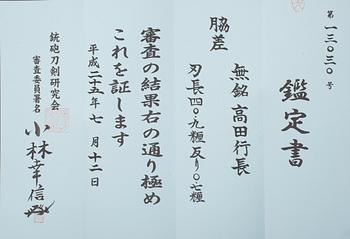 第一三〇三〇号
鑑定書
脇差
無銘 高田行長
刃長四〇、九糎 反り一、〇七糎
審査の結果右の通り極め
これを証します
平成二十五年 七月 十二日
銃砲刀剣研究会
審査委員署名
小林暉信